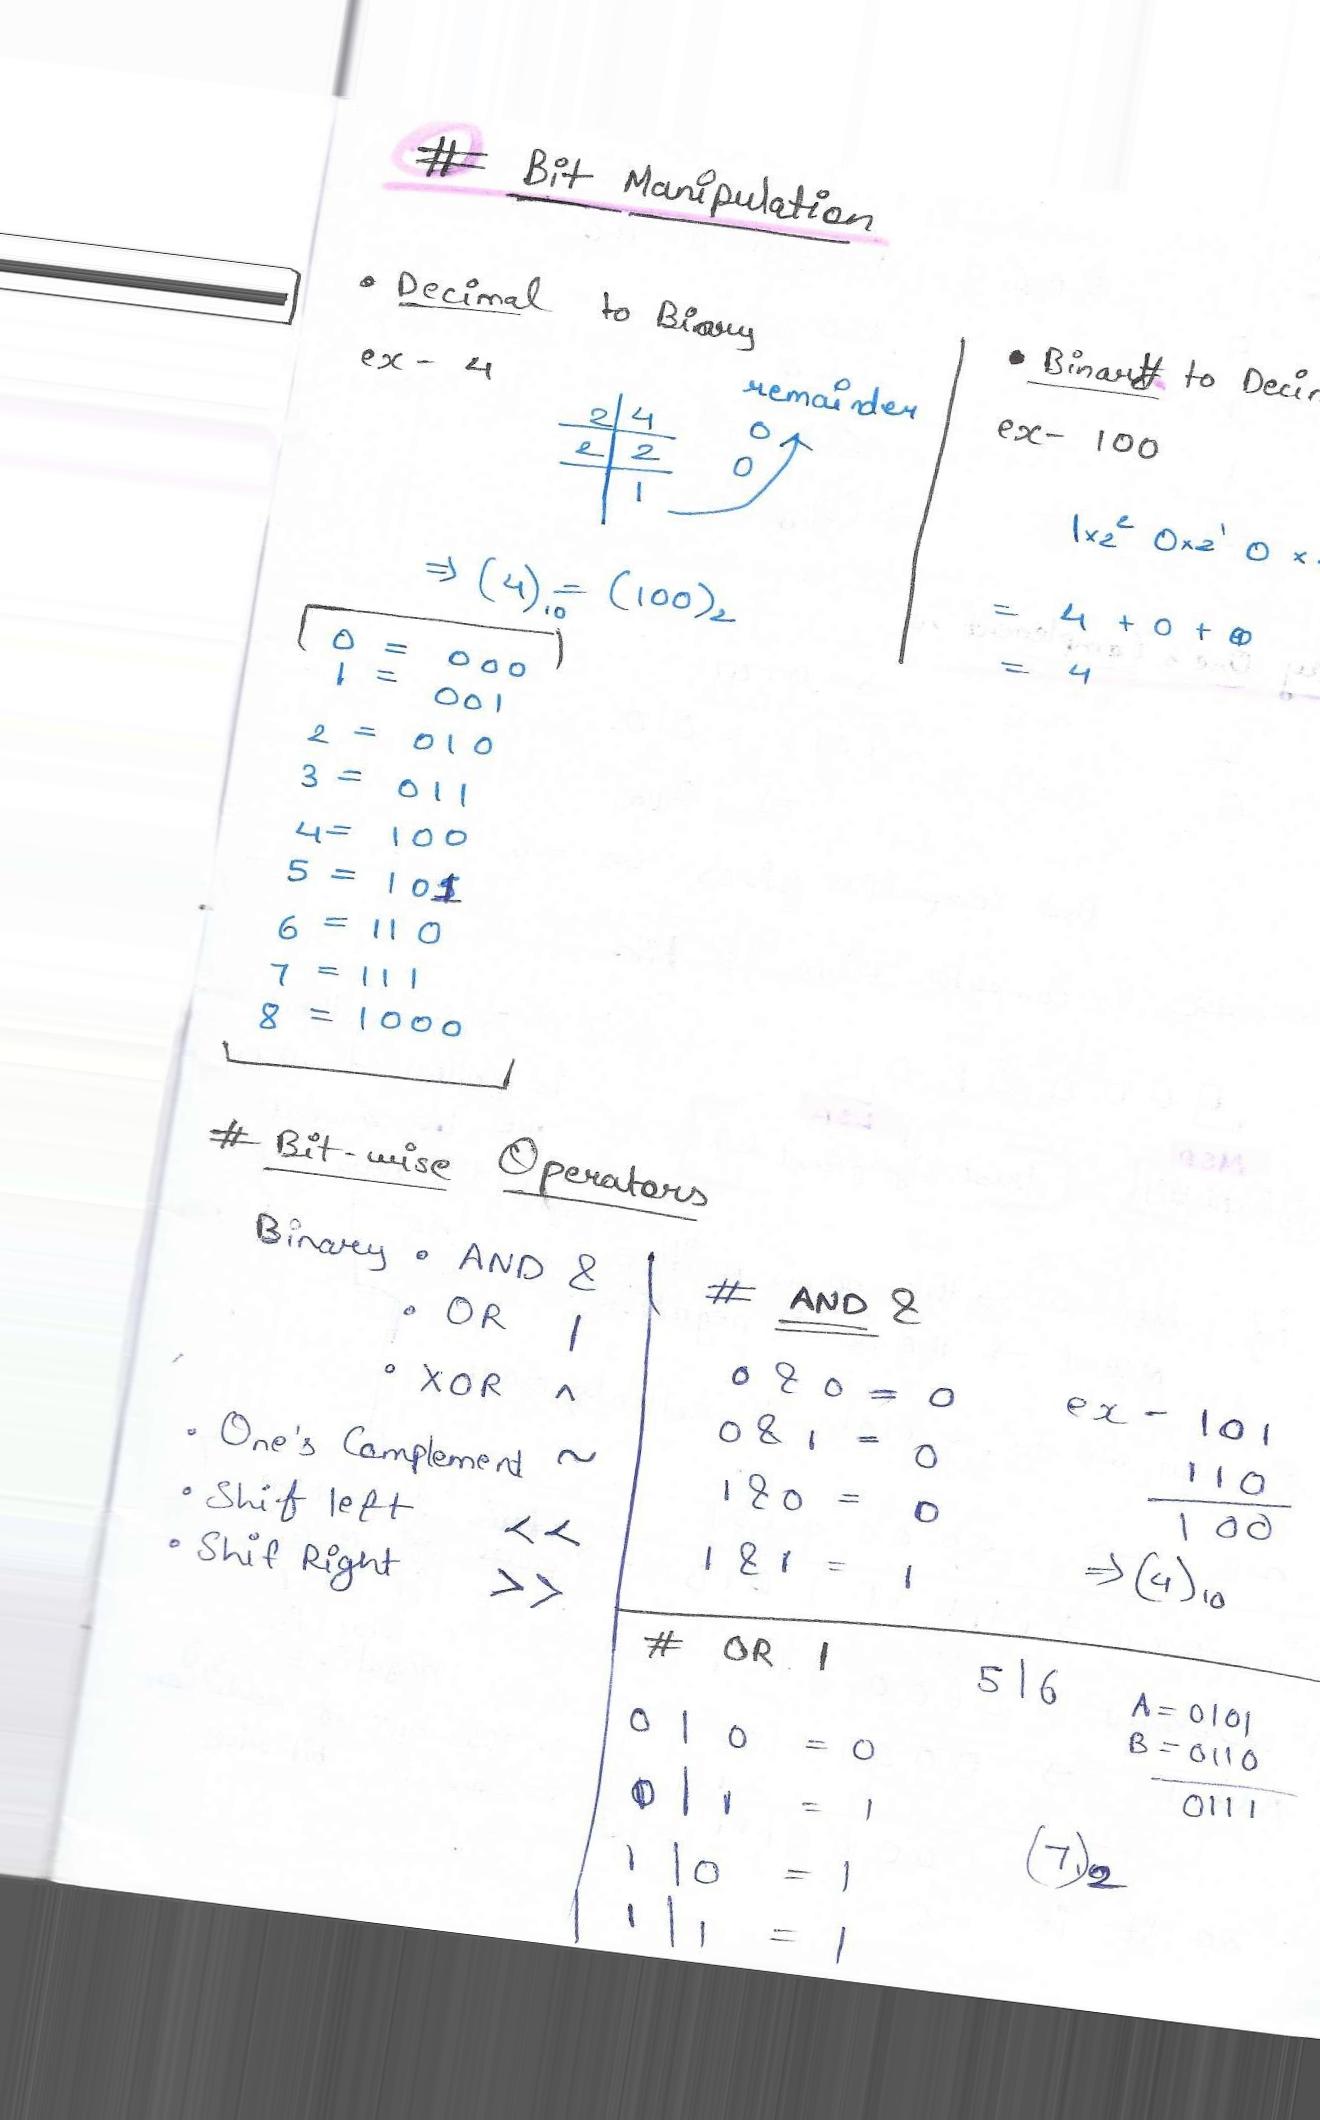 # Bit Manipulation
• Decimal to Binary
ex - 4
remainder
2 | 4 0
2 | 2 0
1
⇒ (4)₁₀ = (100)₂
0 = 000
1 = 001
2 = 010
3 = 011
4 = 100
5 = 101
6 = 110
7 = 111
8 = 1000
• Binary to Decim
ex - 100
1×2² 0×2¹ 0 ×
= 4 + 0 + 0
= 4
# Bit-wise Operators
Binary • AND &
• OR |
• XOR ^
• One's Complement ~
• Shift left <<
• Shif Right >>
# AND &
0 & 0 = 0
0 & 1 = 0
1 & 0 = 0
1 & 1 = 1
ex - 101
110
100
⇒ (4)₁₀
# OR |
0 | 0 = 0
0 | 1 = 1
1 | 0 = 1
1 | 1 = 1
5|6
A = 0101
B = 0110
0111
(7)₂